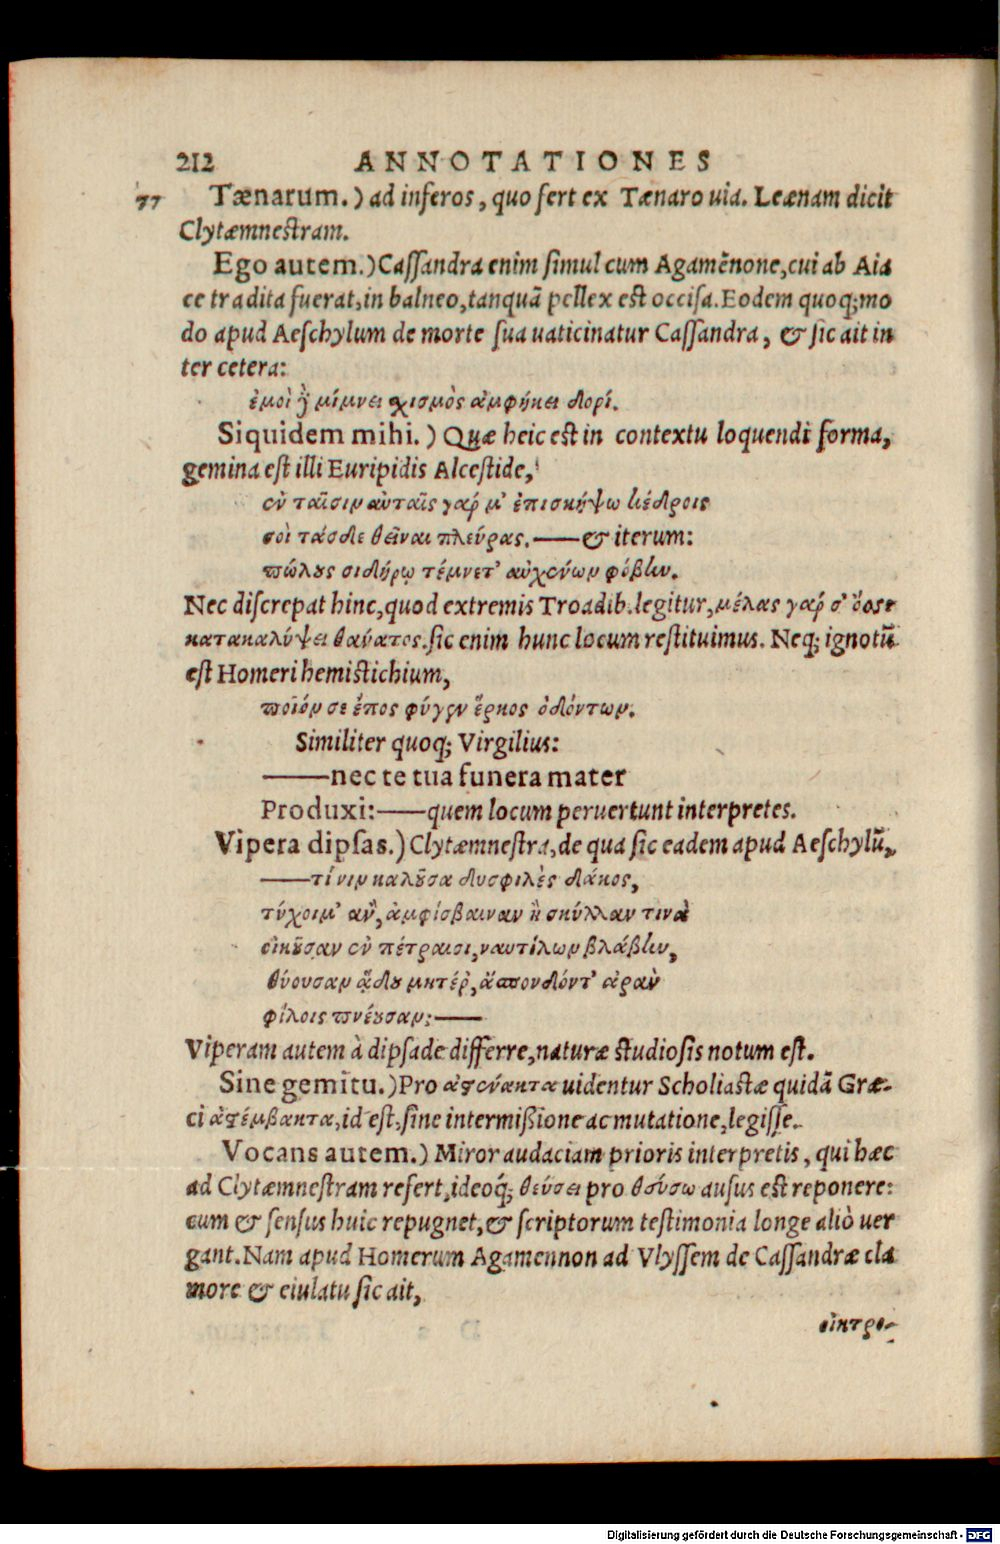 212 ANNOTATIONES
77 Tænarum.) ad inferos, quo fert ex Tænaro uia. Leænam dicit
Clytæmnestram.
Ego autem.) Cassandra enim simul cum Agamẽnone, cui ab Aia
ce tradita fuerat, in balneo, tanquã pellex est occisa. Eodem quoq; mo
do apud Aeschylum de morte sua uaticinatur Cassandra, & sic ait in
ter cetera:
ἐμοὶ ἢ μίμνει χισμὸς ἀμφήκει δορί.
Siquidem mihi.) Quæ heic est in contextu loquendi forma,
gemina est illi Euripidis Alcestide,
ἐν ταῖσιν αὐταῖς γάρ μ' ἐπισκήψω κέδροις
σοὶ τάσδε θεῖναι πλεύρας. —— & iterum:
πώλους σιδήρῳ τέμνετ' αὐχένων φόβην.
Nec discrepat hinc, quod extremis Troadib. legitur, μέλας γάρ σ' ὄσσε
κατακαλύψει θάνατος. sic enim hunc locum restituimus. Neq; ignotũ
est Homeri hemistichium,
ποῖόν σε ἔπος φύγεν ἕρκος ὀδόντων.
Similiter quoq; Virgilius:
—— nec te tua funera mater
Produxi: —— quem locum peruertunt interpretes.
Vipera dipsas.) Clytæmnestra, de qua sic eadem apud Aeschylũ,
—— τί νιν καλοῦσα δυσφιλὲς δάκος,
τύχοιμ' ἄν, ἀμφίσβαιναν ἢ σκύλλαν τινὰ
οἰκοῦσαν ἐν πέτραισι, ναυτίλων βλάβην,
θύουσαν ᾅδου μητέρ', ἄσπονδόντ' ἀρὰν
φίλοις πνέουσαν; ——
Viperam autem à dipsade differre, naturæ studiosis notum est.
Sine gemĩtu.) Pro ἀστένακτα uidentur Scholiastæ quidã Græ-
ci ἀστέμβακτα, id est, sine intermißione ac mutatione, legisse.
Vocans autem.) Miror audaciam prioris interpretis, qui hæc
ad Clytæmnestram refert, ideoq; θεύσει pro θεύσω ausus est reponere:
cum & sensus huic repugnet, & scriptorum testimonia longe aliò uer
gant. Nam apud Homerum Agamennon ad Vlyssem de Cassandræ cla
more & eiulatu sic ait,
οἰκτρο-
Digitalisierung gefördert durch die Deutsche Forschungsgemeinschaft - DFG